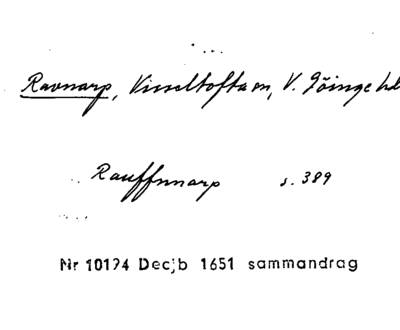 Ravnarp, Visseltofta sn, V. Göinge hd
Rauffnnarp s. 389
Nr 10194 Decjb 1651 sammandrag